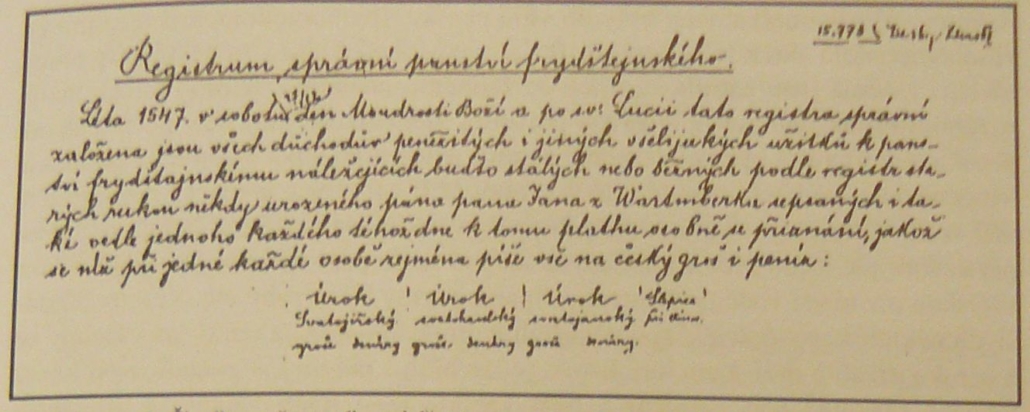 15.778
Registrum správní panství frydštejnského.
Léta 1547. v sobotu den Moudrosti Boží a po sv. Lucii tato registra správní
založena jsou všech důchodův peněžitých i jiných všelijakých užitků k pans-
tví frydštajnskému náležejících buďto stálých nebo běžných podle registr sta-
rých rukou někdy urozeného pána pana Jana z Wartmberka sepsaných i ta-
ké vedle jednoho každého téhož dne k tomu plathu osobně se přiznání, jakož
se níž při jedné každé osobě zejména píše vše na český groš i peníz:
Úrok Úrok Úrok Slepice
Svatojiřský svatohavelský svatojanský
groše denáry groše denáry groše denáry